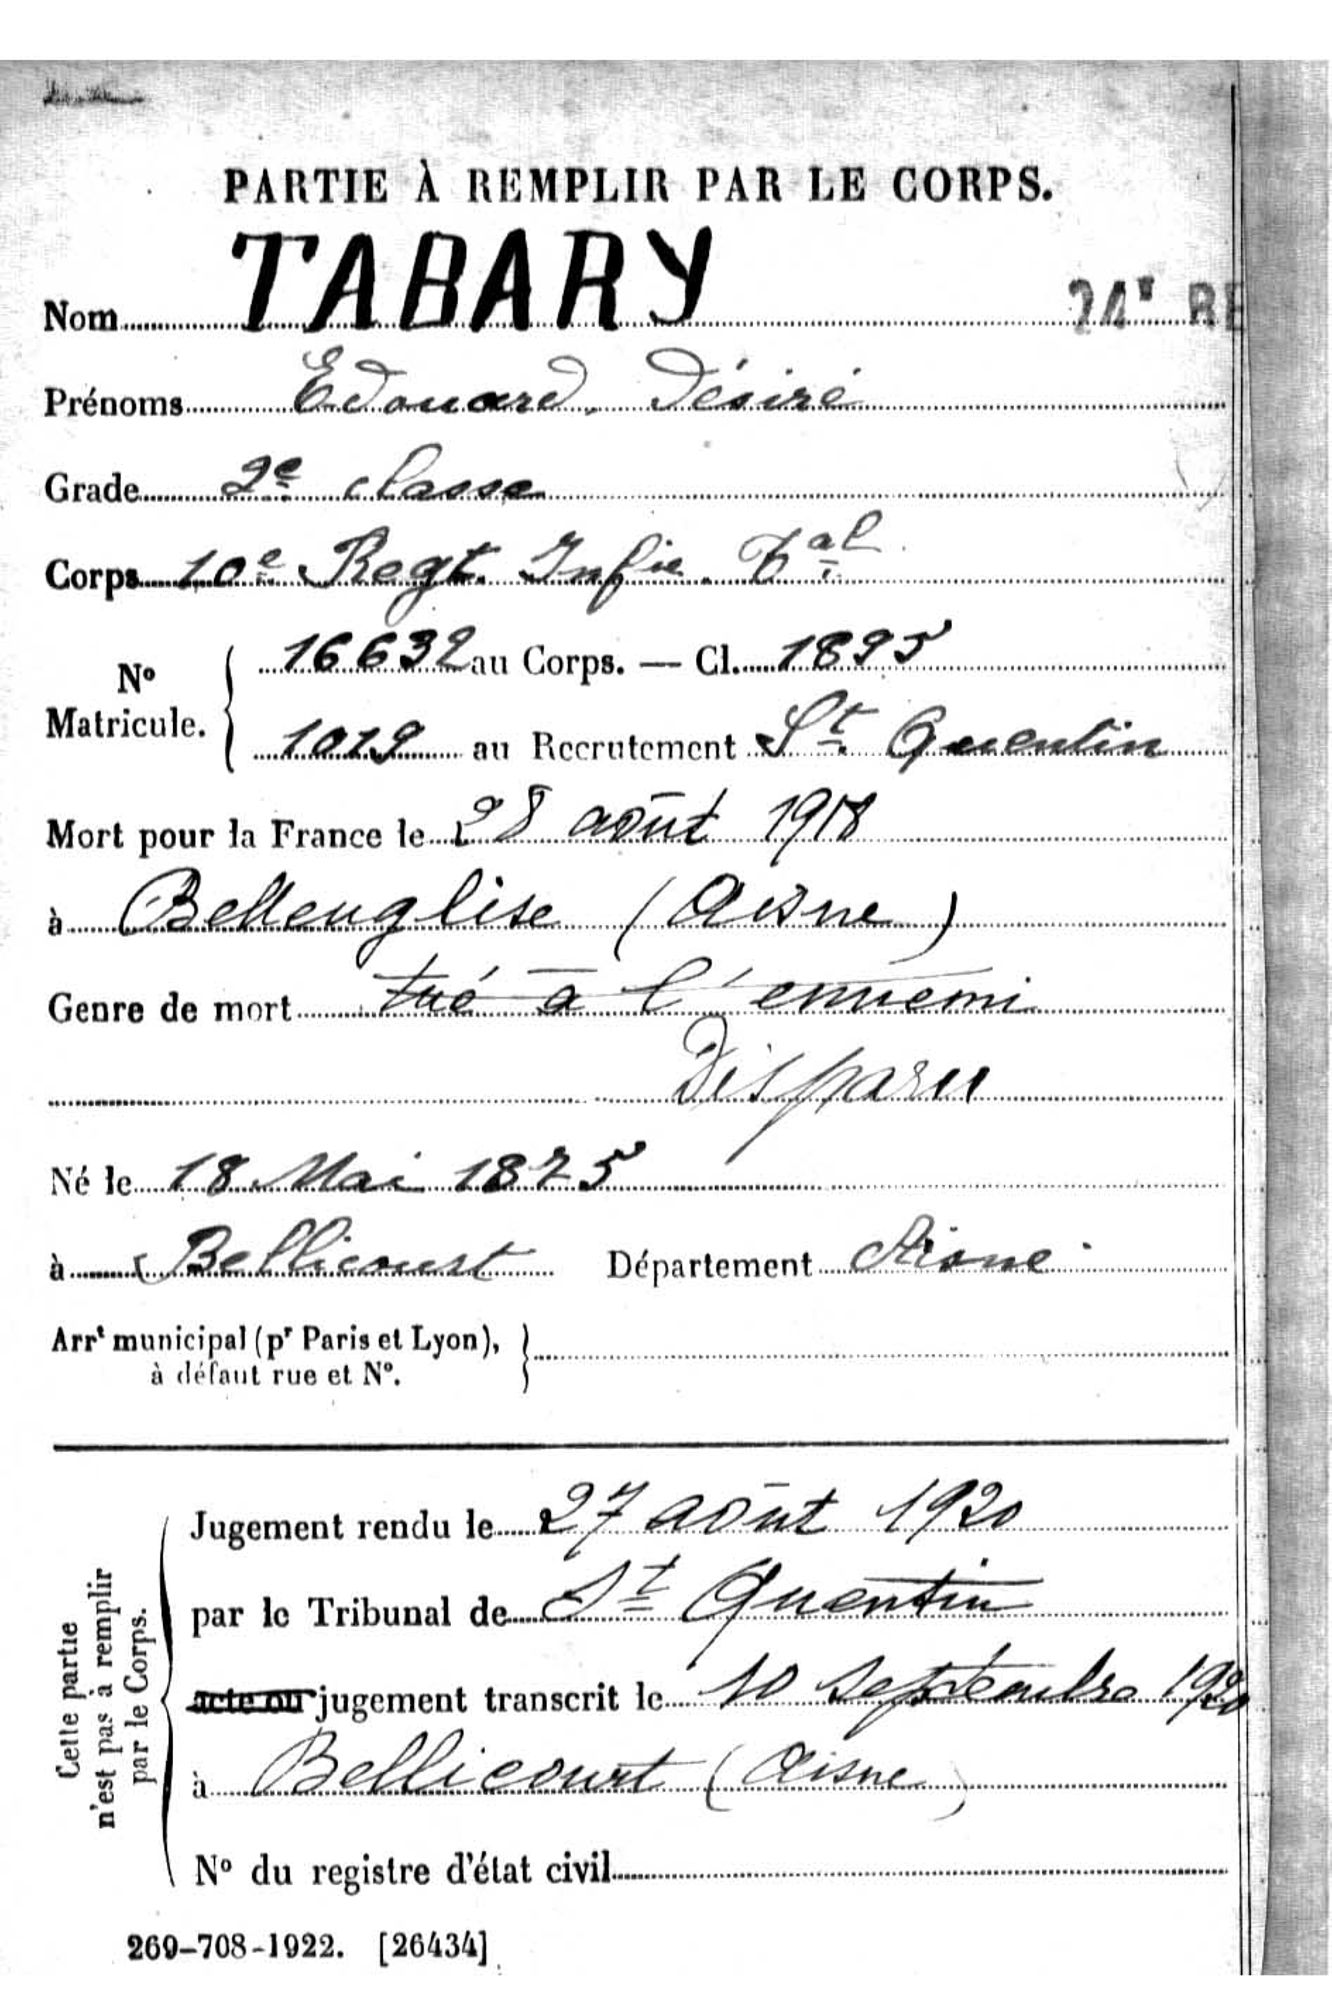 PARTIE À REMPLIR PAR LE CORPS.
Nom TABARY
24e RE
Prénoms Edouard, Désiré
Grade 2e classe
Corps 10e Regt Infie Tal
No Matricule. 16632 au Corps. — Cl. 1895
1019 au Recrutement St Quentin
Mort pour la France le 28 août 1918
à Bellenglise (Aisne)
Genre de mort tué à l'ennemi
Disparu
Né le 18 Mai 1875
à Bellicourt Département Aisne
Arrt municipal (pr Paris et Lyon),
à défaut rue et No.
Cette partie
n'est pas à remplir
par le Corps.
Jugement rendu le 27 août 1920
par le Tribunal de St Quentin
acte ou jugement transcrit le 10 septembre 1920
à Bellicourt (Aisne)
No du registre d'état civil
269-708-1922. [26434]